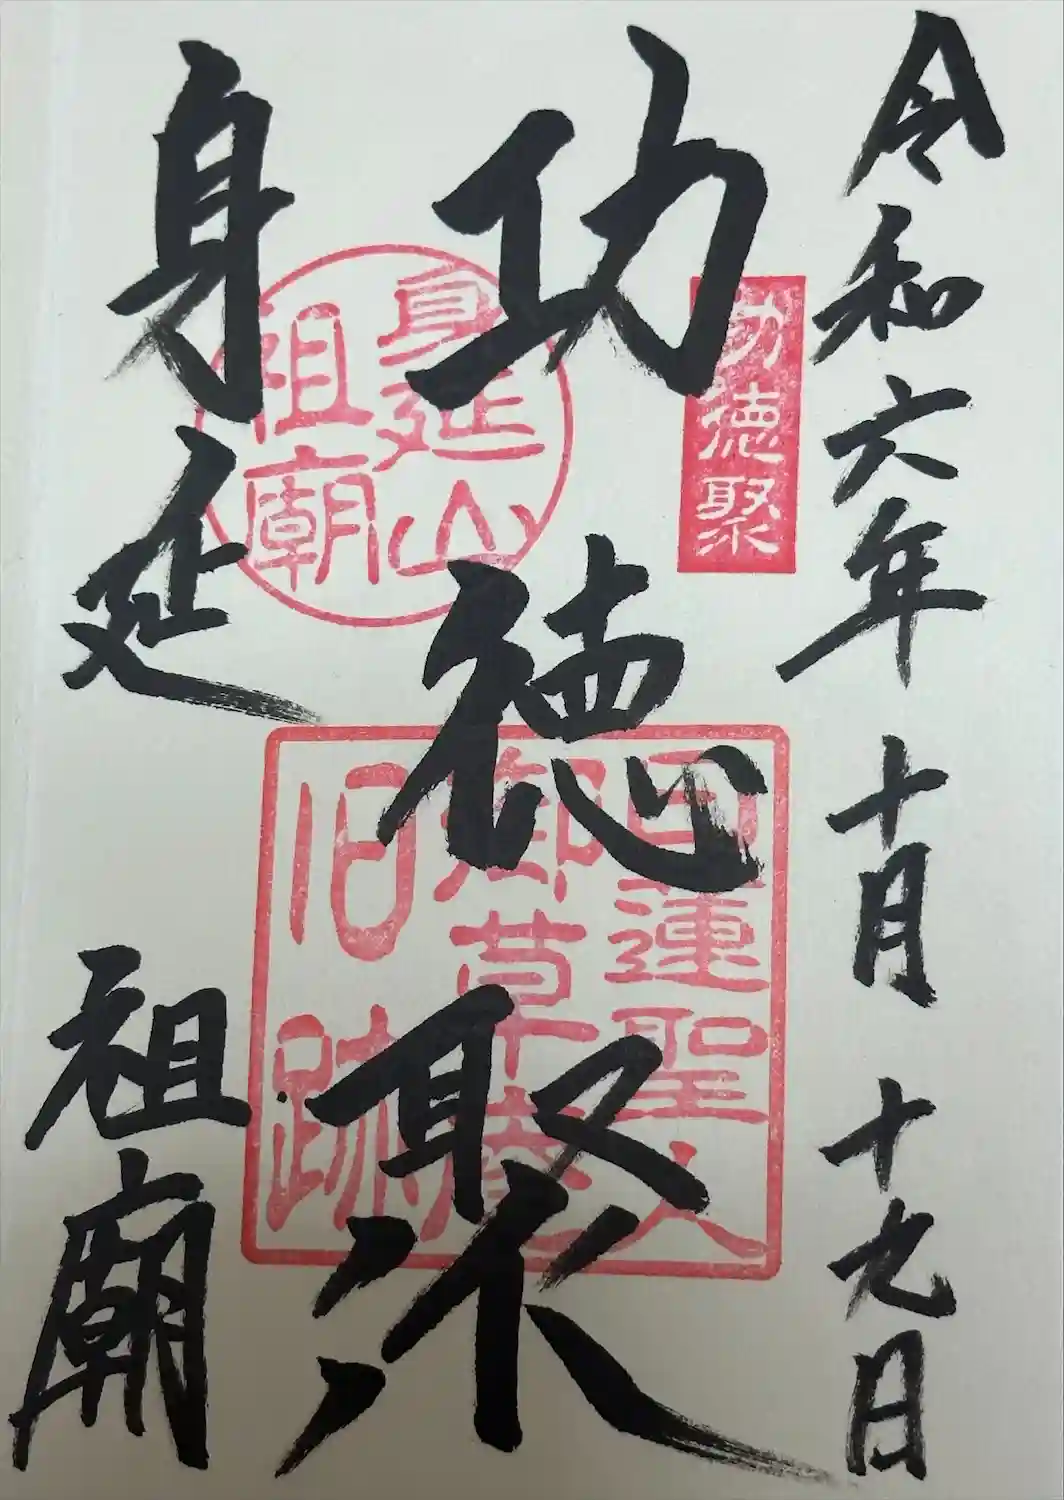 令和六年十月十九日
功徳聚
功徳聚
身延山
祖廟
日蓮聖人
御草庵
旧跡
身延 祖廟